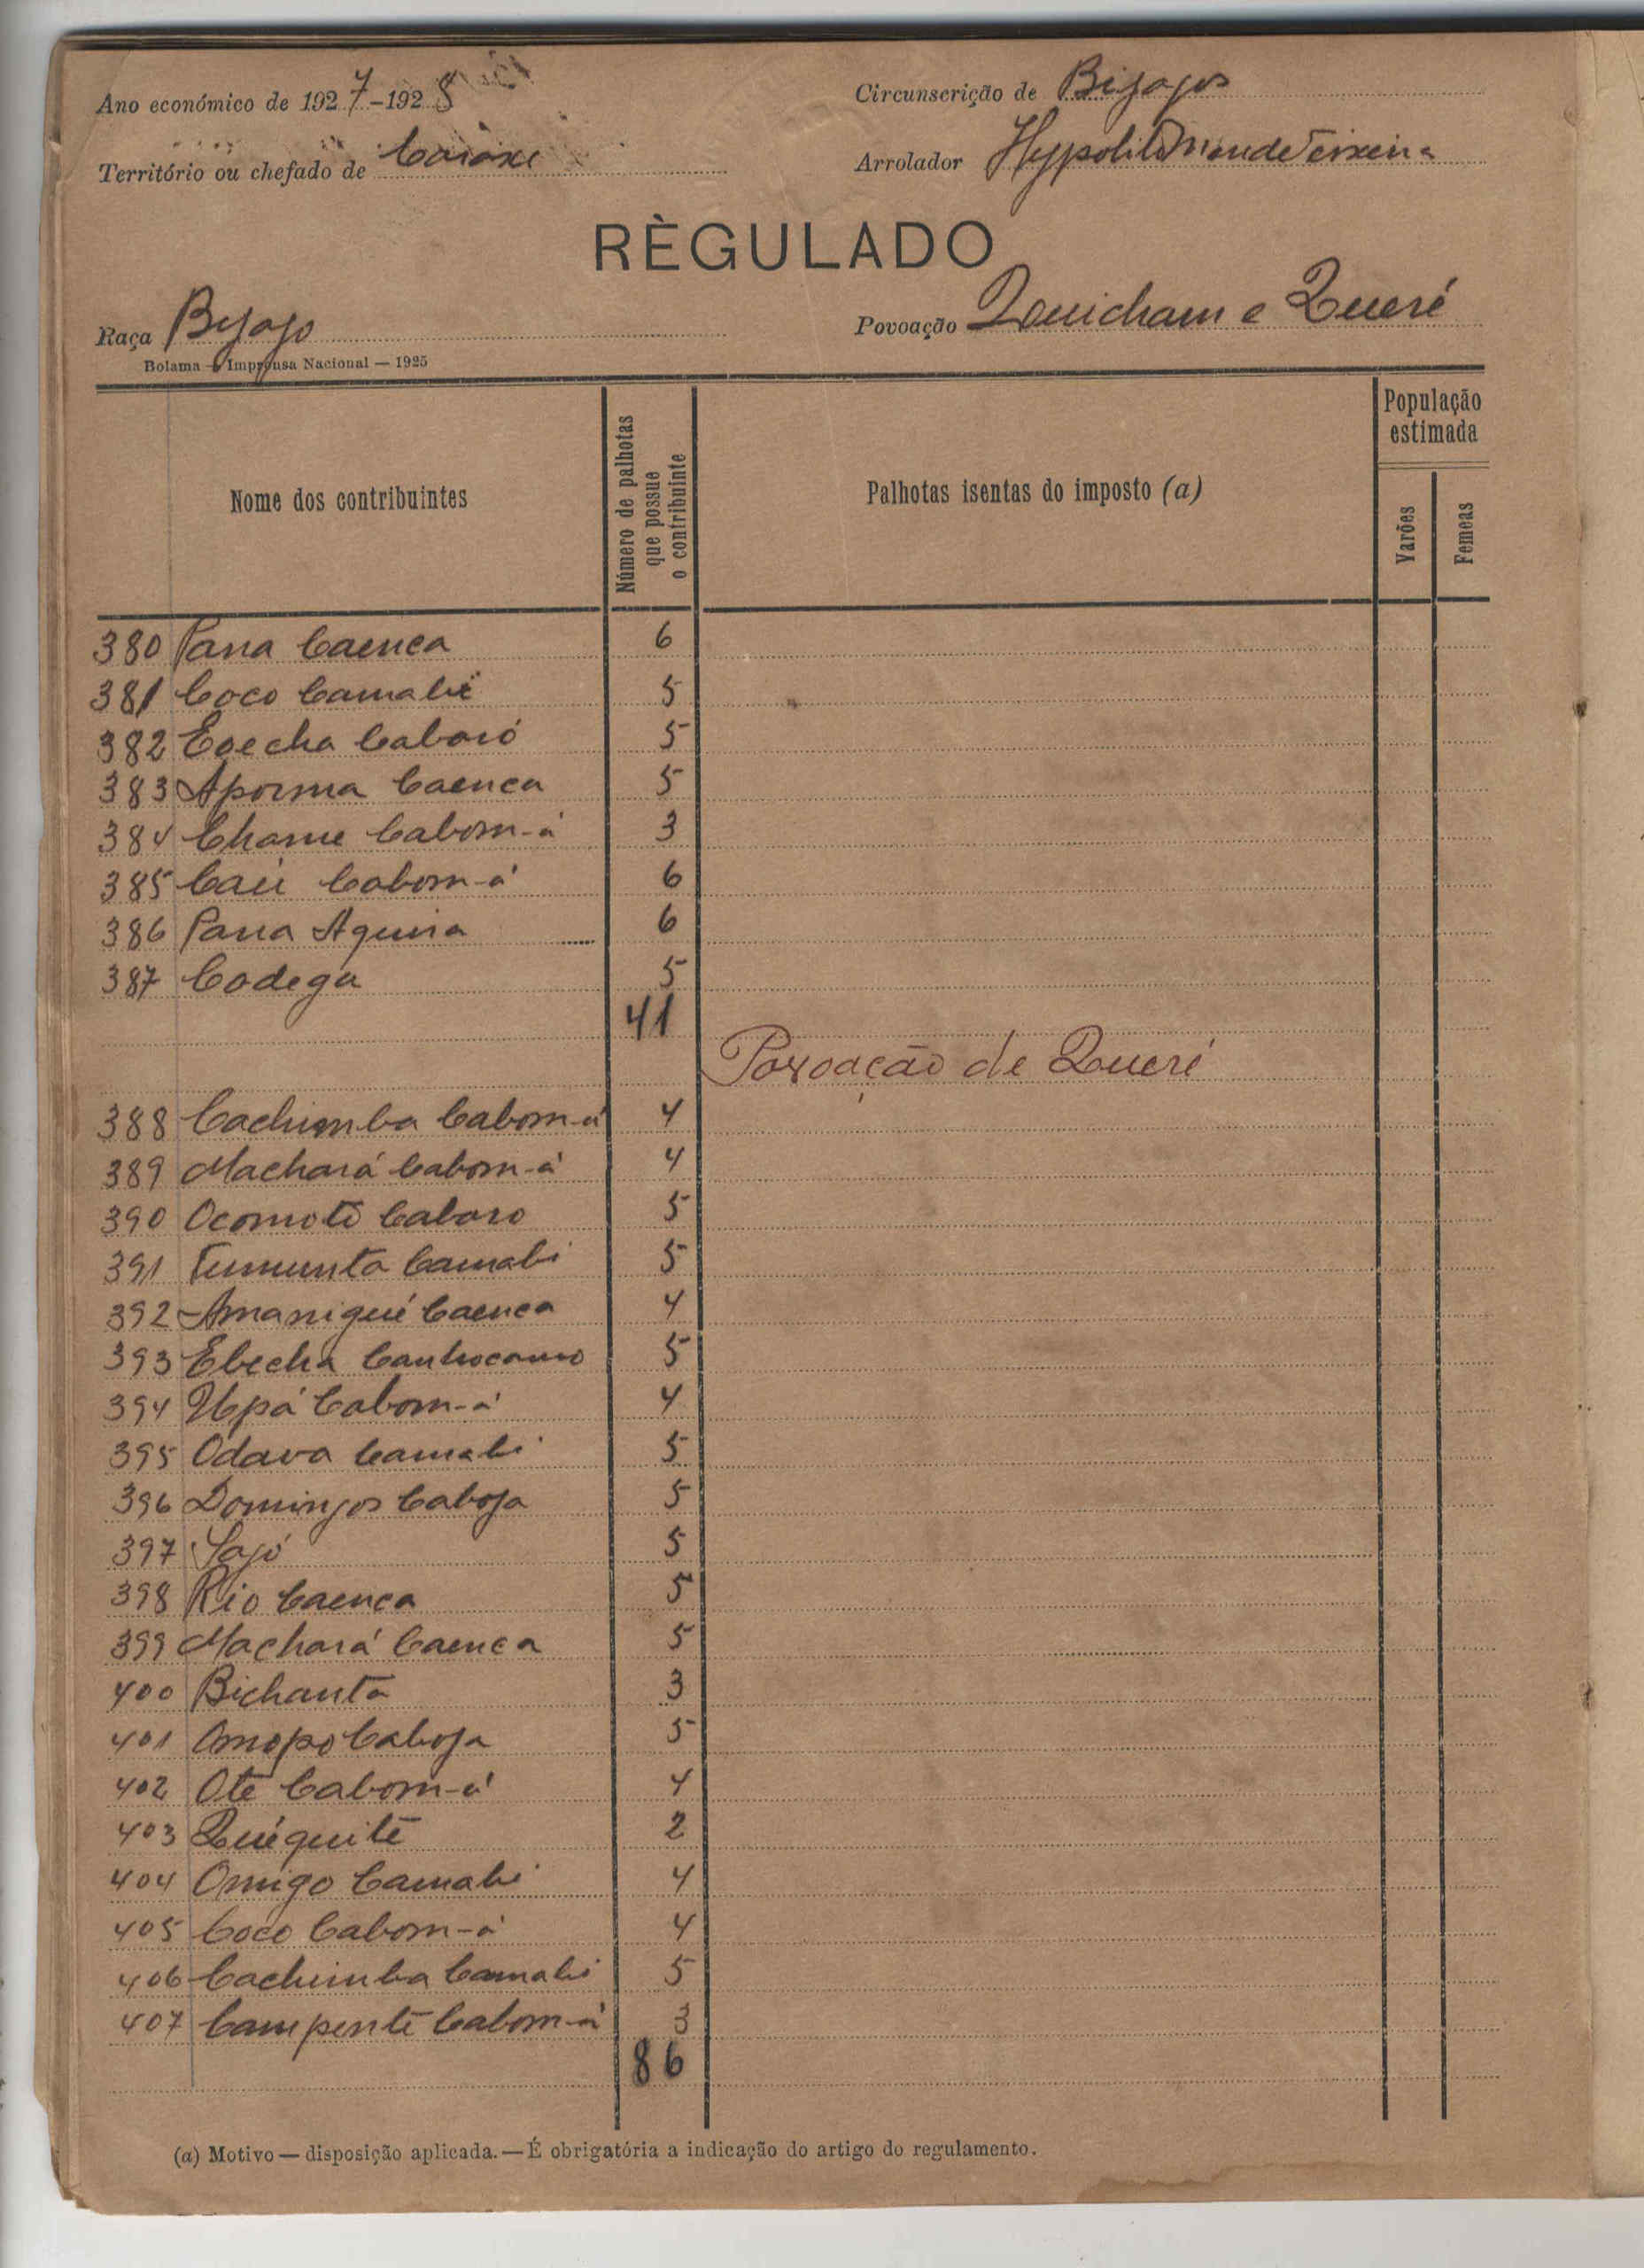 Ano económico de 1927-1928
Circunscrição de Bijagos
Território ou chefado de
Arrolador Hypolito Teixeira
RÈGULADO
Raça Byjago
Povoação Quicham e Queré
Bolama — Imprensa Nacional — 1925
Nome dos contribuintes
Número de palhotas que possue o contribuinte
Palhotas isentas do imposto (a)
População estimada
Varões
Femeas
380 Pana Caenca 6
381 Coco Camabi 5
382 Eoecha Caboró 5
383 Aporma Caenca 5
384 Chame Cabom-á 3
385 Caú Cabom-á 6
386 Pana Aguina 6
387 Codega 5
41
Povoação de Queré
388 Cachimba Cabom-á 4
389 Machará Cabom-á 4
390 Ocomotê Caboro 5
391 Camabi 5
392 Amaniqué Caenca 4
393 Ebecha 5
394 Upá Cabom-á 4
395 Odava Camabi 5
396 Domingos Caboja 5
397 5
398 Rio Caenca 5
399 Machará Caenca 5
400 Bichanta 3
401 Omopo Caboja 5
402 Ote Cabom-á 4
403 Quéquité 2
404 Omigo Camabi 4
405 Coco Cabom-á 4
406 Cachimba Camabi 5
407 Campenté Cabom-á 3
86
(a) Motivo — disposição aplicada. — É obrigatória a indicação do artigo do regulamento.